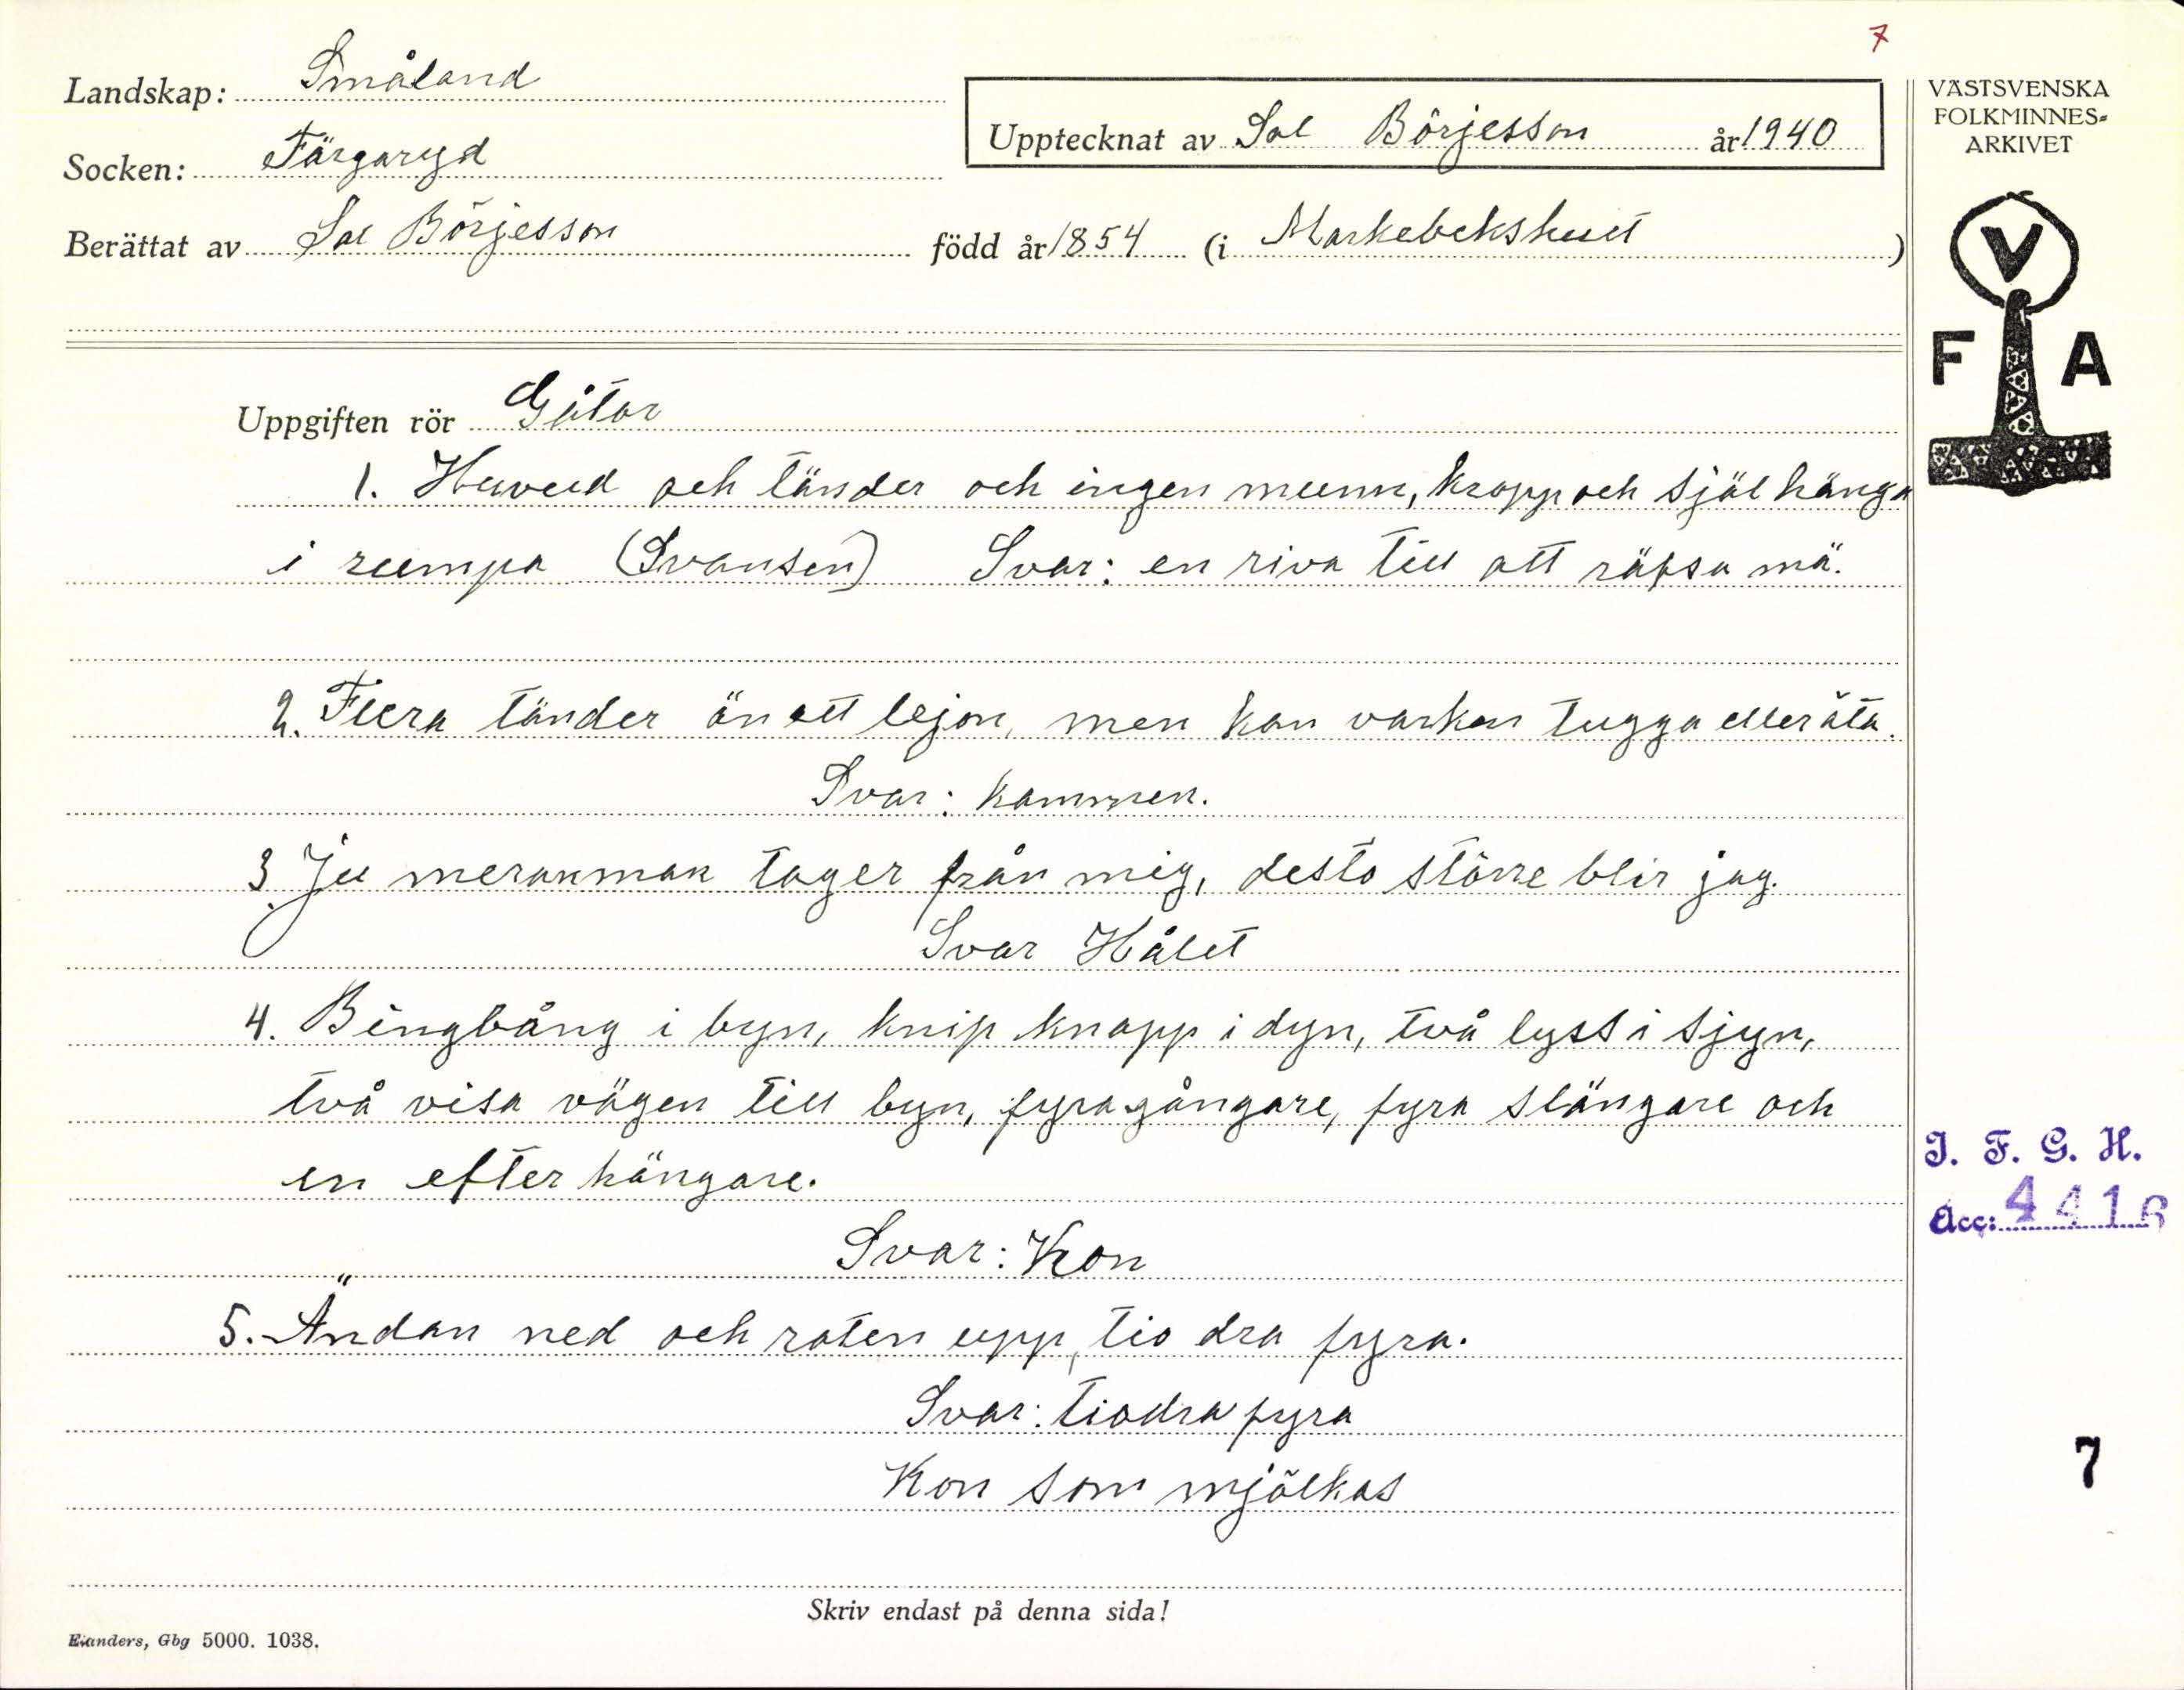 7
Landskap: Småland
Socken: Färgaryd
Upptecknat av Sal Börjesson år 1940
Berättat av Sal Börjesson född år 1854 (i Markebekshult)
VÄSTSVENSKA
FOLKMINNES-
ARKIVET
V
F A
Uppgiften rör Gåtor
1. Huvud och tänder och ingen munn, kropp och själ hänga
i rumpa (Svansen) Svar: en riva till att räfsa mä.
2. Flera tänder än ett lejon, men kan varken tugga eller äta.
Svar: kammen.
3. Ju meranman tager från mig, desto större blir jag.
Svar Hålet
4. Bingbång i byn, knip knapp i dyn, två lyss i sjyn,
två visa vägen till byn, fyra gångare, fyra slängare och
en efter hängare.
Svar: Kon
5. Ändan ned och roten upp, tio dra fyra.
Svar: tiodra fyra
Kon som mjölkas
I. F. G. H.
Acc: 4416
7
Skriv endast på denna sida!
Elanders, Gbg 5000. 1038.